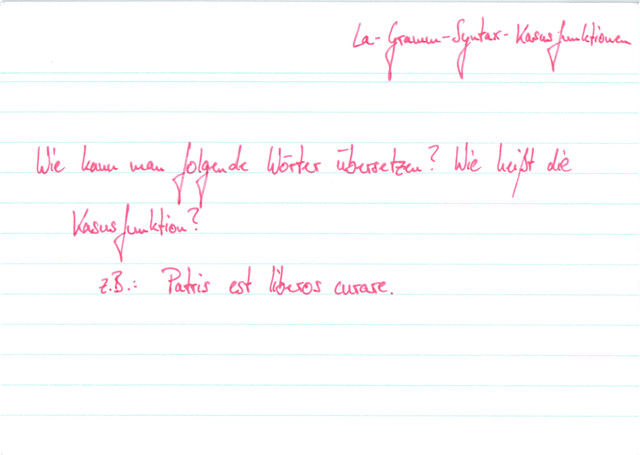 La-Gramm-Syntax-Kasusfunktionen
Wie kann man folgende Wörter übersetzen? Wie heißt die
Kasusfunktion?
z.B.: Patris est liberos curare.